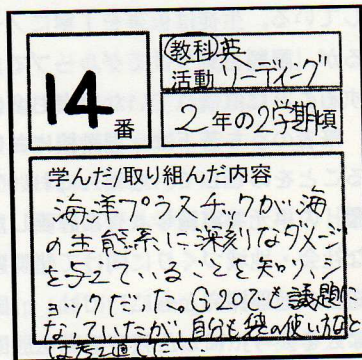 14番
教科 英
活動 リーディング
2年の2学期頃
学んだ/取り組んだ内容
海洋プラスチックが海
の生態系に深刻なダメージ
を与えていることを知り、シ
ョックだった。G20でも議題に
なっていたが、自分も袋の使い方など
は考え直したい。